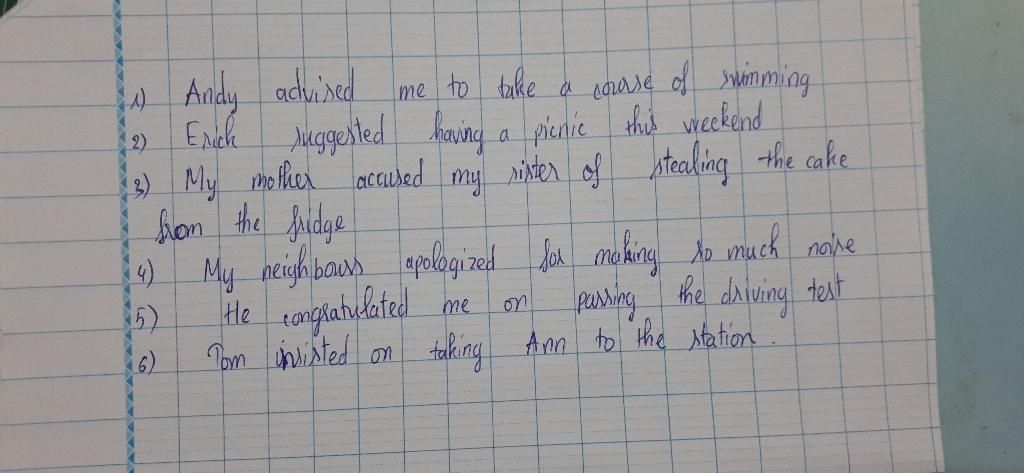 1) Andy advised me to take a course of swimming
2) Erick suggested having a picnic this weekend
3) My mother accused my sister of stealing the cake
from the fridge
4) My neighbours apologized for making so much noise
5) He congratulated me on passing the driving test
6) Tom insisted on taking Ann to the station.